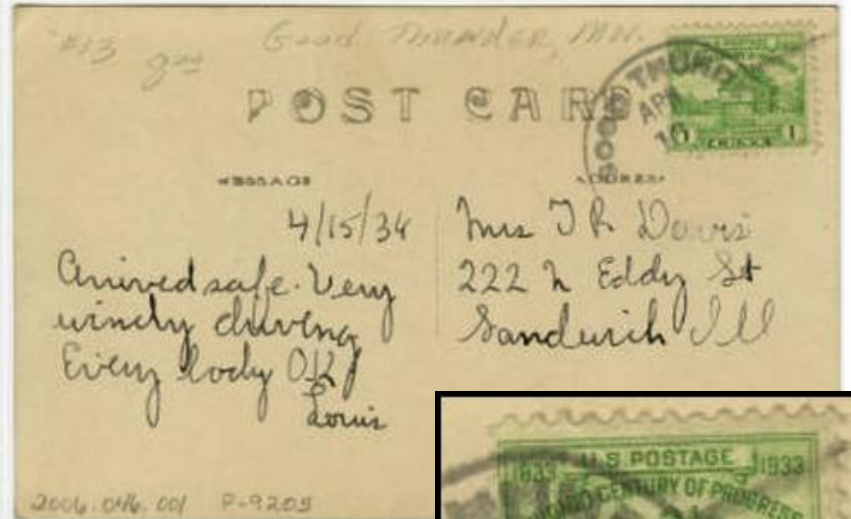 #13
Good Thunder, MN.
POST CARD
GOOD THUND
APR
1
CHICAGO
MESSAGE
ADDRESS
4/15/34
Arrived safe. Very
windy driving
Every body OK
Louis
Mrs J R Davis
222 N Eddy St
Sandwich Ill
2006.046.001 P-9205
U.S. POSTAGE
1833 1933
CHICAGO CENTURY OF PROGRESS